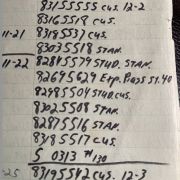 83155555 CUS. 12-2
83165518 CUS.
11-21 83185537 CUS.
83035518 STAN.
11-22 82845579 STAD. STAN.
82695629 EXP. PASS $1.40
82985504 STAD. CUS.
83025508 STAN.
82875516 STAN.
83185517 CUS.
5 0313 #130
25 83195542 CUS. 12-3